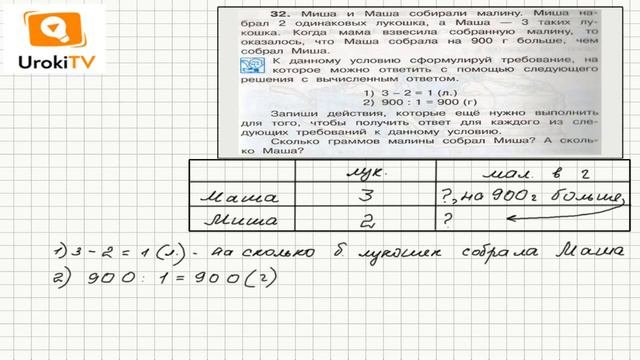 UrokiTV
32. Миша и Маша собирали малину. Миша на-
брал 2 одинаковых лукошка, а Маша — 3 таких лу-
кошка. Когда мама взвесила собранную малину, то
оказалось, что Маша собрала на 900 г больше, чем
собрал Миша.
К данному условию сформулируй требование, на
которое можно ответить с помощью следующего
решения с вычисленным ответом.
1) 3 – 2 = 1 (л.)
2) 900 : 1 = 900 (г)
Запиши действия, которые ещё нужно выполнить
для того, чтобы получить ответ для каждого из сле-
дующих требований к данному условию.
Сколько граммов малины собрал Миша? А сколь-
ко Маша?
лук. мал. в г
Маша 3 ?, на 900 г больше,
Миша 2 ?
1) 3 – 2 = 1 (л.) - на сколько б. лукошек собрала Маша
2) 900 : 1 = 900 (г)